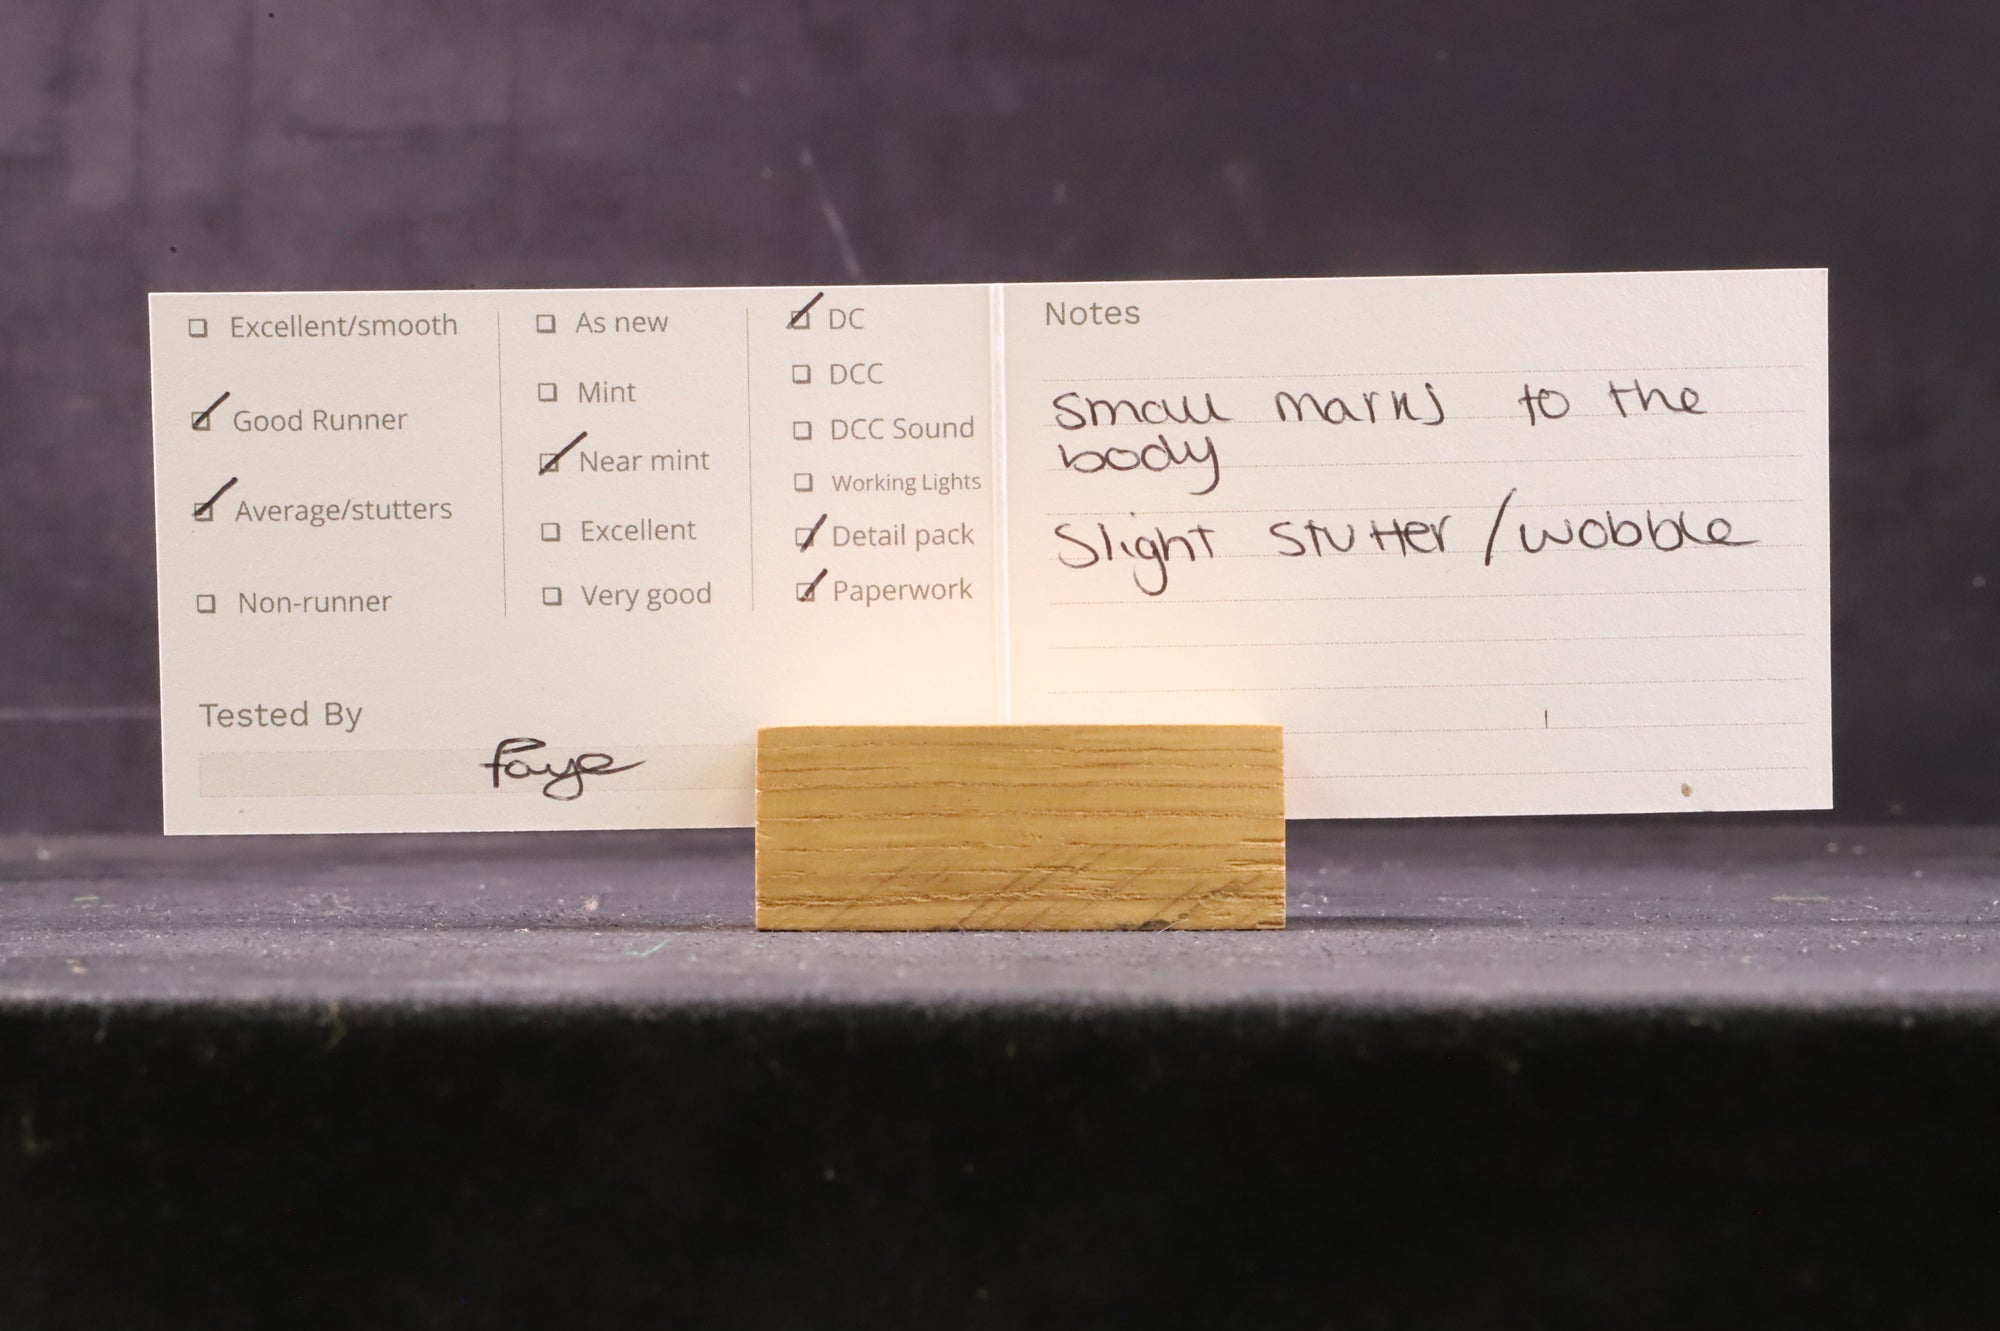 Excellent/smooth
Good Runner
Average/stutters
Non-runner
As new
Mint
Near mint
Excellent
Very good
DC
DCC
DCC Sound
Working Lights
Detail pack
Paperwork
Tested By
Faye
Notes
small marks to the
body
Slight stutter / wobble